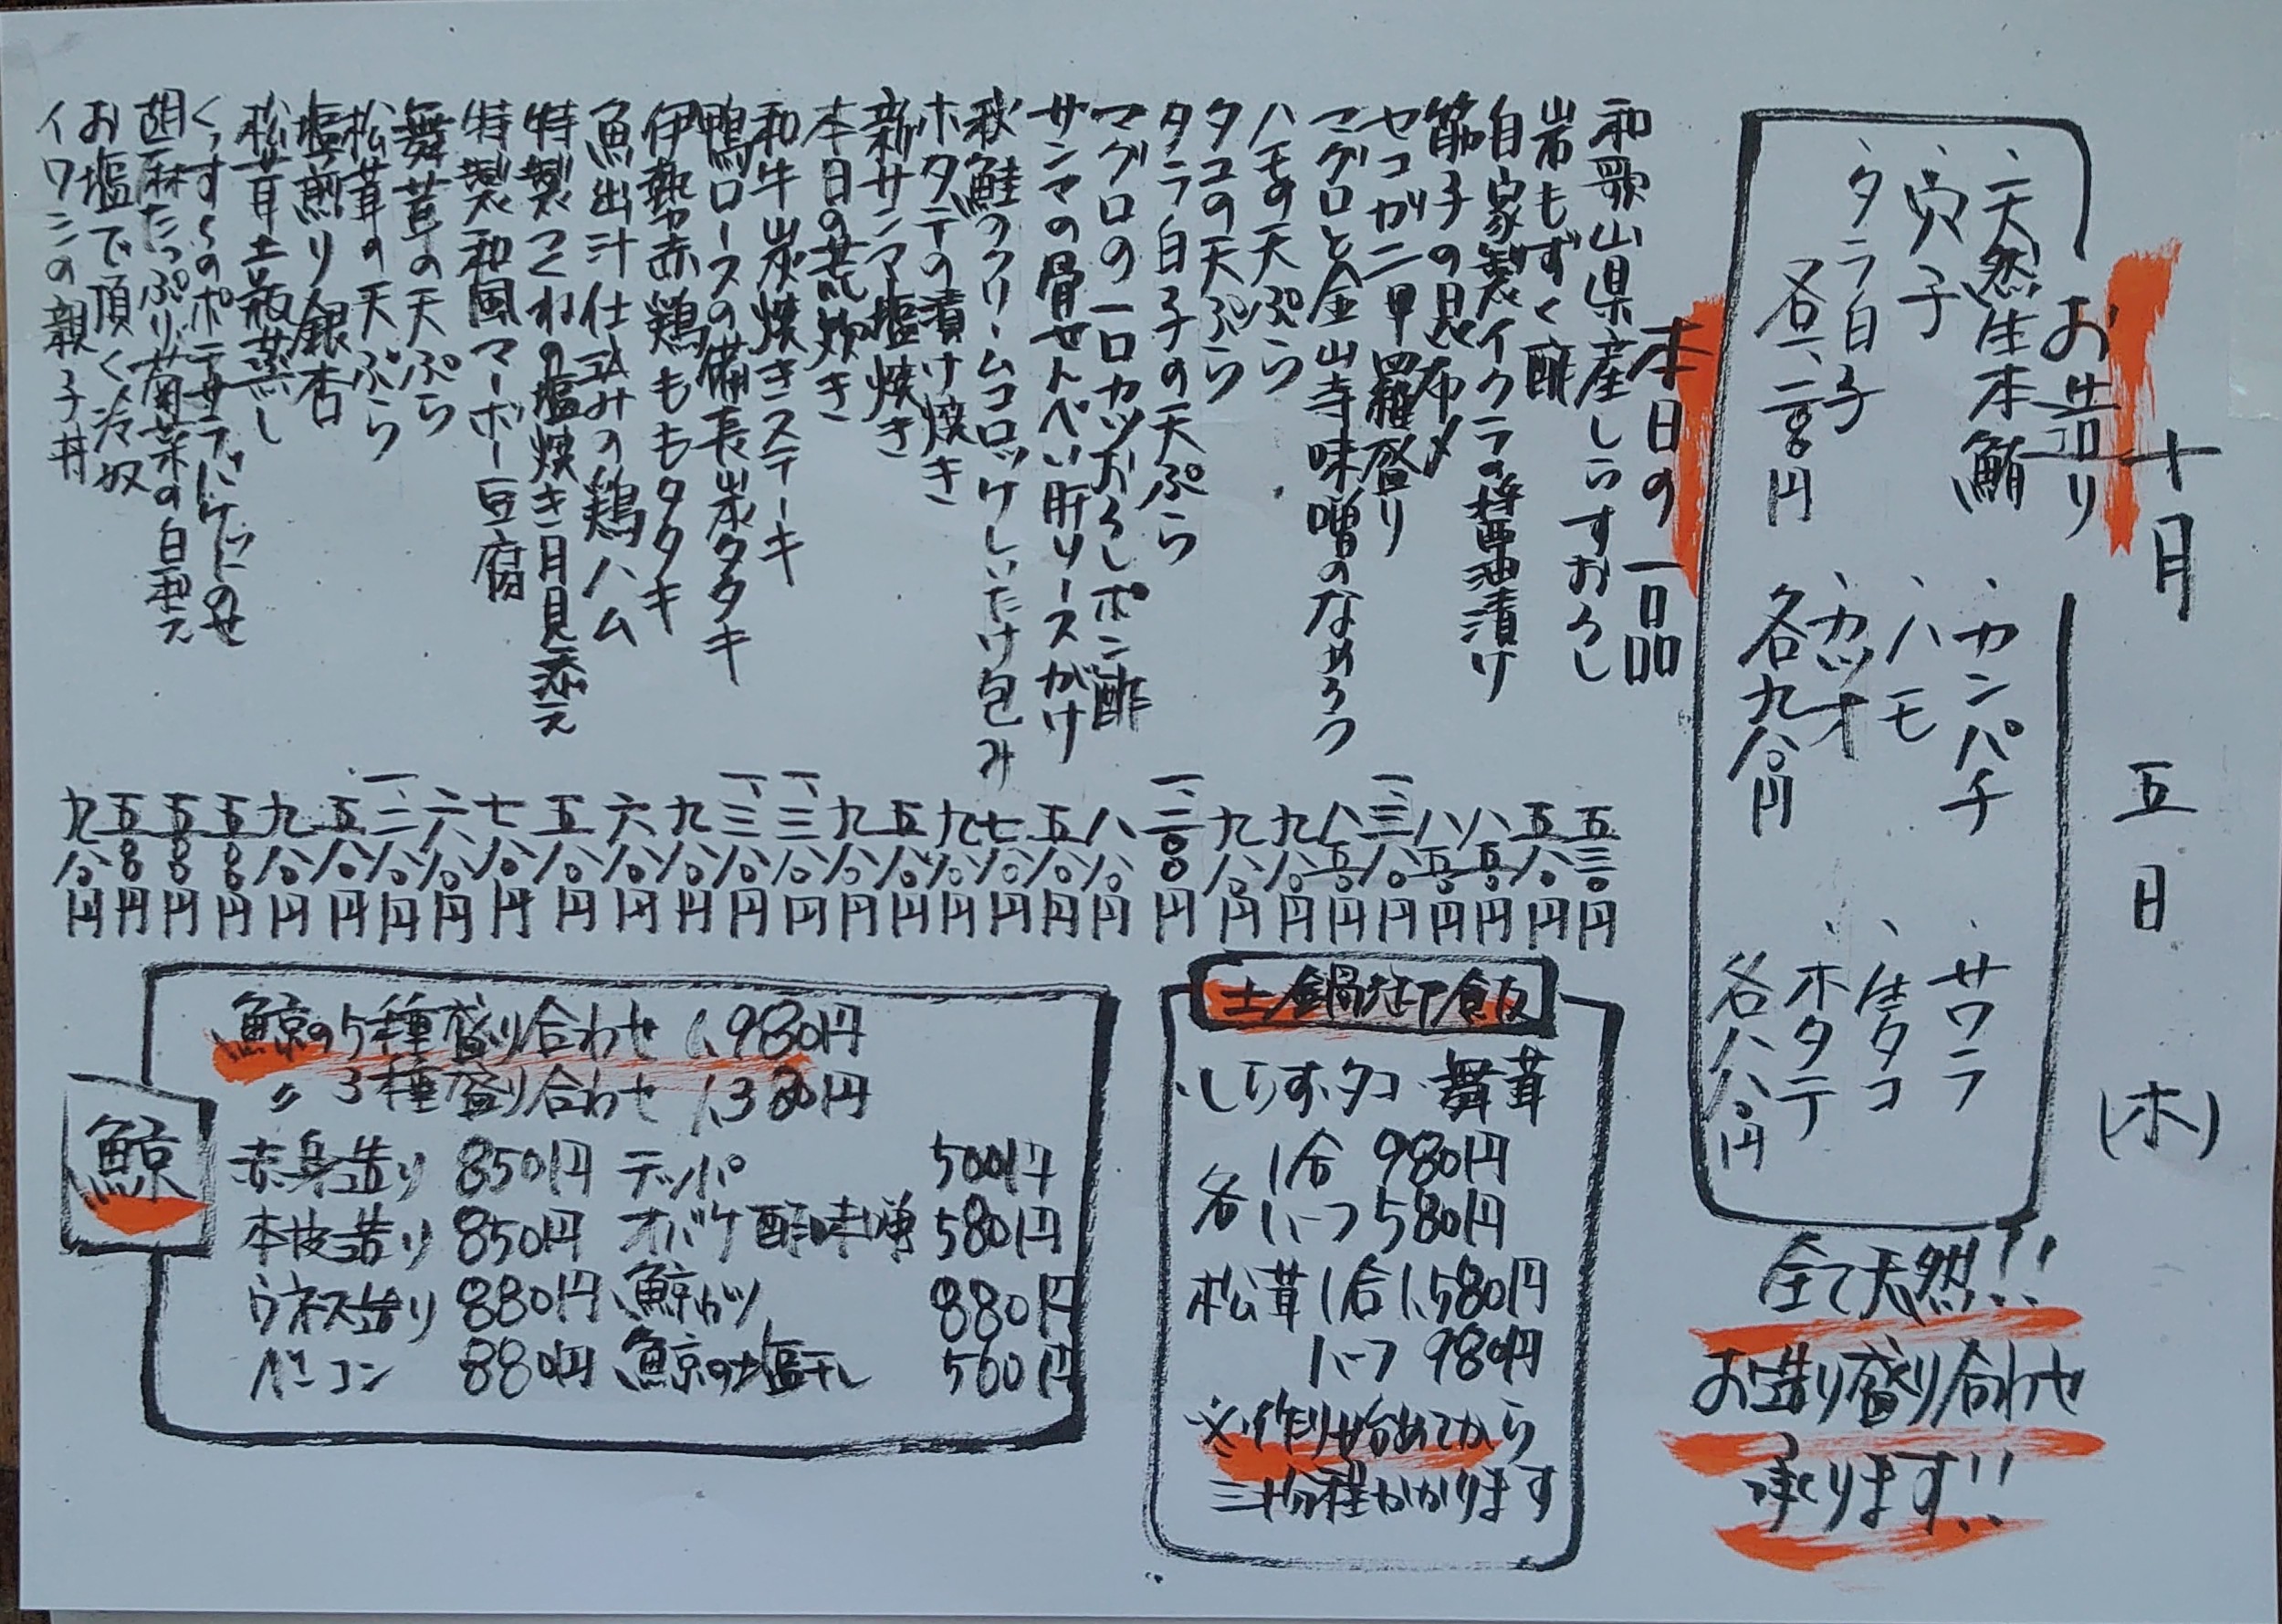 十月 五日 (木)
お造り
、天然生本鮪
、穴子
、タラ白子
各一、二八〇円
、カンパチ
、ハモ
、カツオ
各九八〇円
、サワラ
、生タコ
、ホタテ
各八八〇円
全て天然!!
お造り盛り合わせ
承ります!!
本日の一品
和歌山県産しらすおろし 五三〇円
岩もずく酢 五八〇円
自家製イクラの醤油漬け 八五〇円
筋子の昆布〆 八五〇円
セコガニ甲羅盛り 一、三八〇円
マグロと金山寺味噌のなめろう 八五〇円
ハモの天ぷら 九八〇円
タコの天ぷら 九八〇円
タラ白子の天ぷら 一、二八〇円
マグロの一口カツおろしポン酢 八八〇円
サンマの骨せんべい肝ソースがけ 五八〇円
秋鮭のクリームコロッケしいたけ包み 七八〇円
ホタテの漬け焼き 九八〇円
新サンマ塩焼き 五八〇円
本日の荒炊き 九八〇円
和牛炭焼きステーキ 一、三八〇円
鴨ロースの備長炭タタキ 一、三八〇円
伊勢赤鶏ももタタキ 九八〇円
魚出汁仕込みの鶏ハム 六八〇円
特製つくねの塩焼き月見添え 五八〇円
特製和風マーボー豆腐 七八〇円
舞茸の天ぷら 六八〇円
松茸の天ぷら 一、二八〇円
塩煎り銀杏 五八〇円
松茸土瓶蒸し 九八〇円
ポテサラ 五八〇円
胡麻たっぷり菊菜の白和え 五八〇円
お塩で頂く冷奴 五八〇円
イワシの親子丼 九八〇円
土鍋炊き御飯
・しらす・タコ・舞茸
各 1合 980円
ハーフ 580円
松茸 1合 1,580円
ハーフ 980円
※作り始めてから
三十分程かかります
鯨
鯨の5種盛り合わせ 1,980円
〃 3種盛り合わせ 1,380円
赤身造り 850円 テッパ 500円
本皮造り 850円 オバケ酢味噌 580円
ウネス造り 880円 鯨カツ 880円
ベーコン 880円 鯨の塩干し 560円